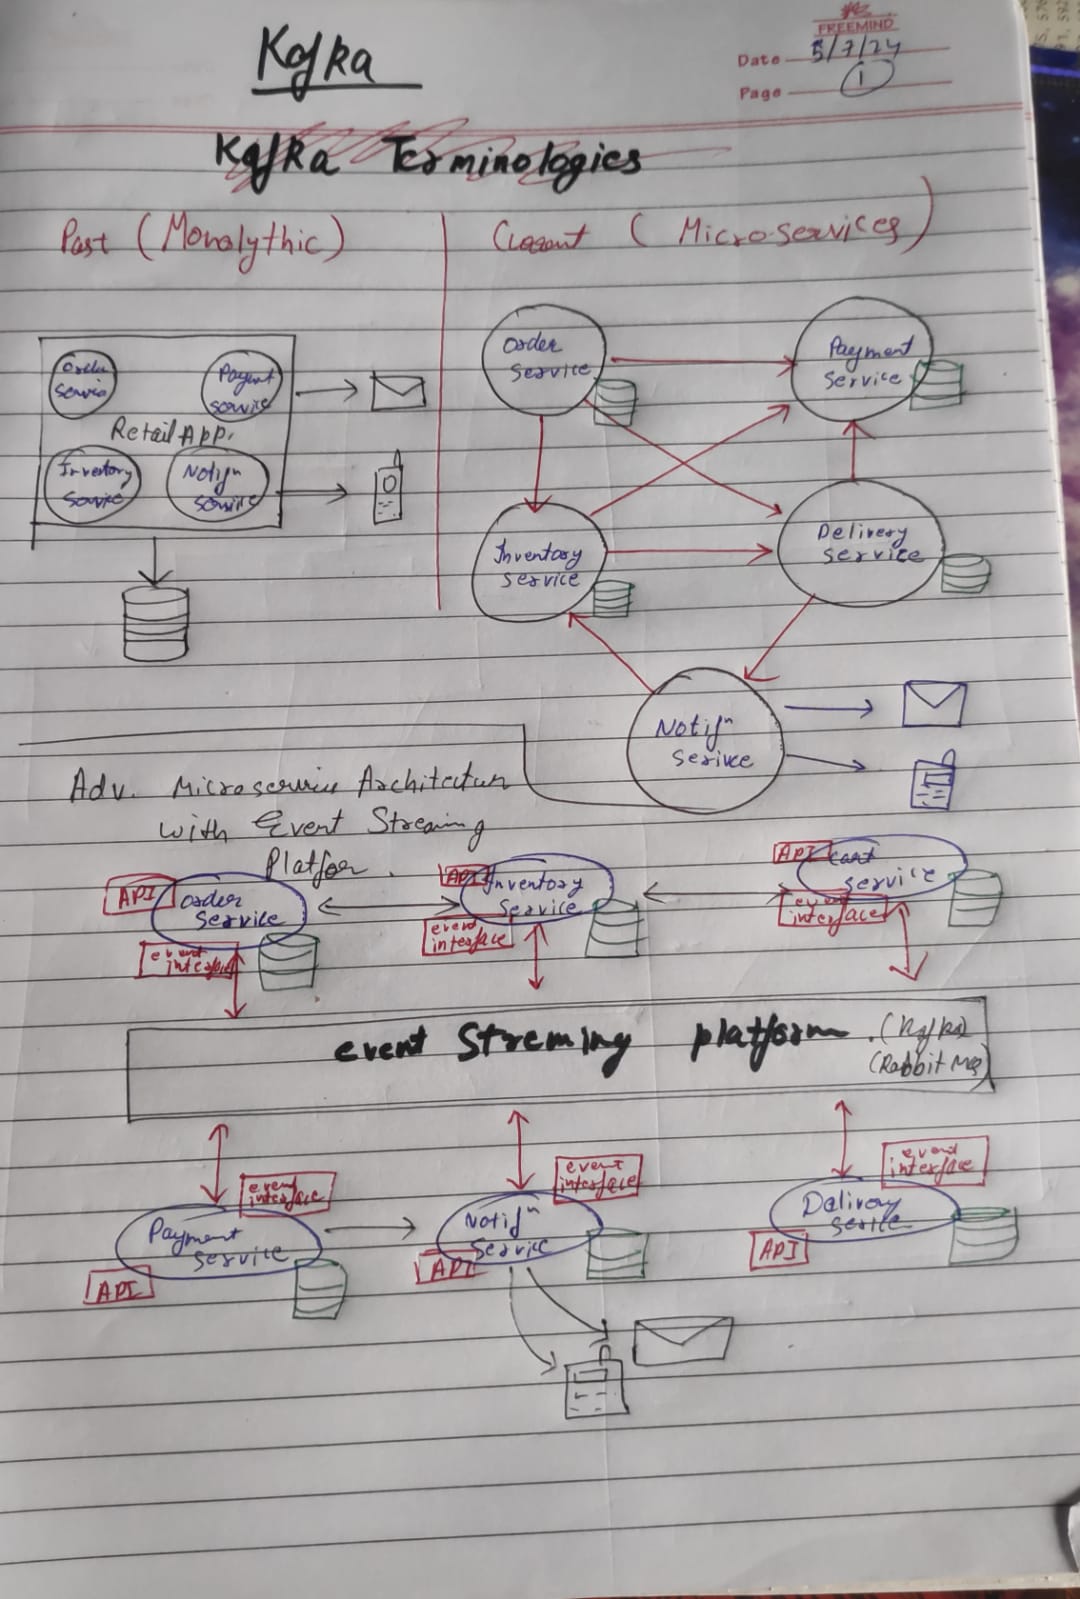 Kafka
FREEMIND
Date 5/7/24
Page 1
Kafka Terminologies
Past (Monolythic)
Current (Microservices)
Order
Servic
Paymt
Servic
Retail App.
Inventory
Servic
Notifn
Servic
Order
Service
Payment
Service
Inventory
Service
Delivery
Service
Notifn
Serivce
Adv. Microservice Architecture
with Event Streaming
Platfor.
API
Order
Service
event
interface
API
Inventory
Service
event
interface
API
Cart
Service
event
interface
event Streming platform. (Kafka)
(Rabbit MQ)
event
interface
Payment
Service
API
event
interface
Notifn
Service
API
event
interface
Delivery
Serite
API